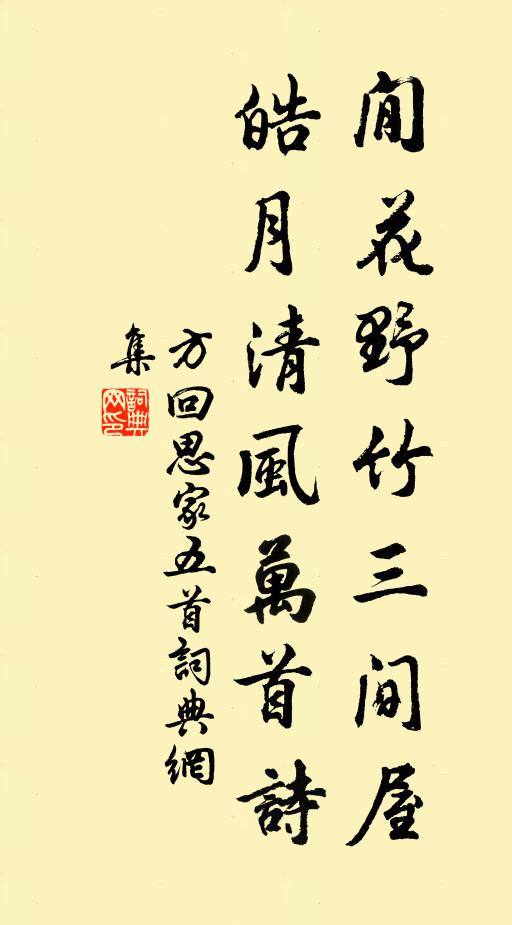 閒花野竹三間屋
皓月清風萬首詩
方回思家五首詞典網
集
詞典
网印